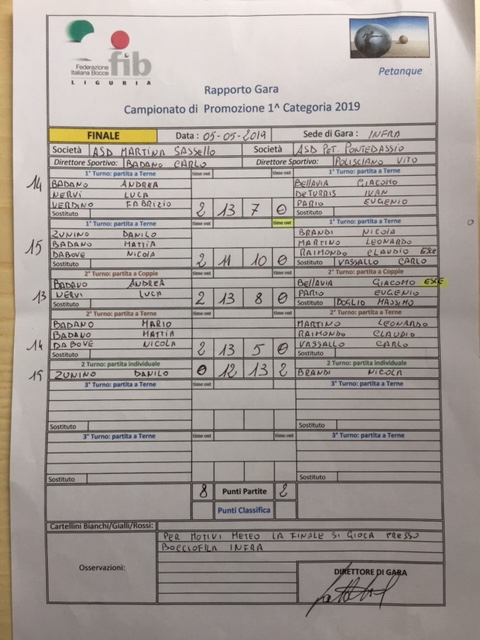 Federazione
Italiana Bocce
fib
LIGURIA
Petanque
Rapporto Gara
Campionato di Promozione 1^ Categoria 2019
FINALE Data: 05-05-2019 Sede di Gara: INFRA
Società ASD MARTINA SASSELLO Società ASD PET. PONTEDASSIO
Direttore Sportivo: BADANO CARLO Direttore Sportivo: POLISCIANO VITO
1° Turno: partita a Terne 1° Turno: partita a Terne
14 BADANO ANDREA BELLAVIA GIACOMO
NERVI LUCA DETURRIS IVAN
VERDINO FABRIZIO 2 13 7 0 PARIO EUGENIO
Sostituto Sostituto
1° Turno: partita a Terne 1° Turno: partita a Terne
ZUNINO DANILO BRANDI NICOLA
15 BADANO MATTIA MARTINO LEONARDO
DABOVE NICOLA 2 11 10 0 RAIMONDO CLAUDIO EXE
Sostituto Sostituto VASSALLO CARLO
2° Turno: partita a Coppie 2° Turno: partita a Coppie
BADANO ANDREA BELLAVIA GIACOMO EXE
13 NERVI LUCA 2 13 8 0 PARIO EUGENIO
Sostituto Sostituto DOGLIO MASSIMO
2° Turno: partita a Terne 2° Turno: partita a Terne
BADANO MARIO MARTINO LEONARDO
BADANO MATTIA RAIMONDO CLAUDIO
14 DABOVE NICOLA 2 13 5 0 VASSALLO CARLO
Sostituto Sostituto
2 Turno: partita individuale 2 Turno: partita individuale
15 ZUNINO DANILO 0 12 13 2 BRANDI NICOLA
3° Turno: partita a Terne 3° Turno: partita a Terne
Sostituto Sostituto
3° Turno: partita a Terne 3° Turno: partita a Terne
Sostituto Sostituto
8 Punti Partite 2
Punti Classifica
Cartellini Bianchi/Gialli/Rossi:
Osservazioni:
PER MOTIVI METEO LA FINALE SI GIOCA PRESSO
BOCCIOFILA INFRA
DIRETTORE DI GARA